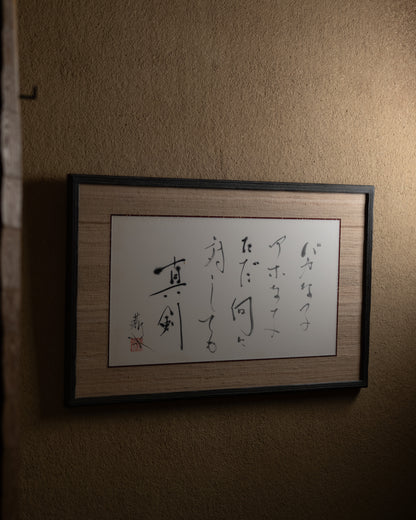 バカな
アホな
ただ何に
対しても
真剣